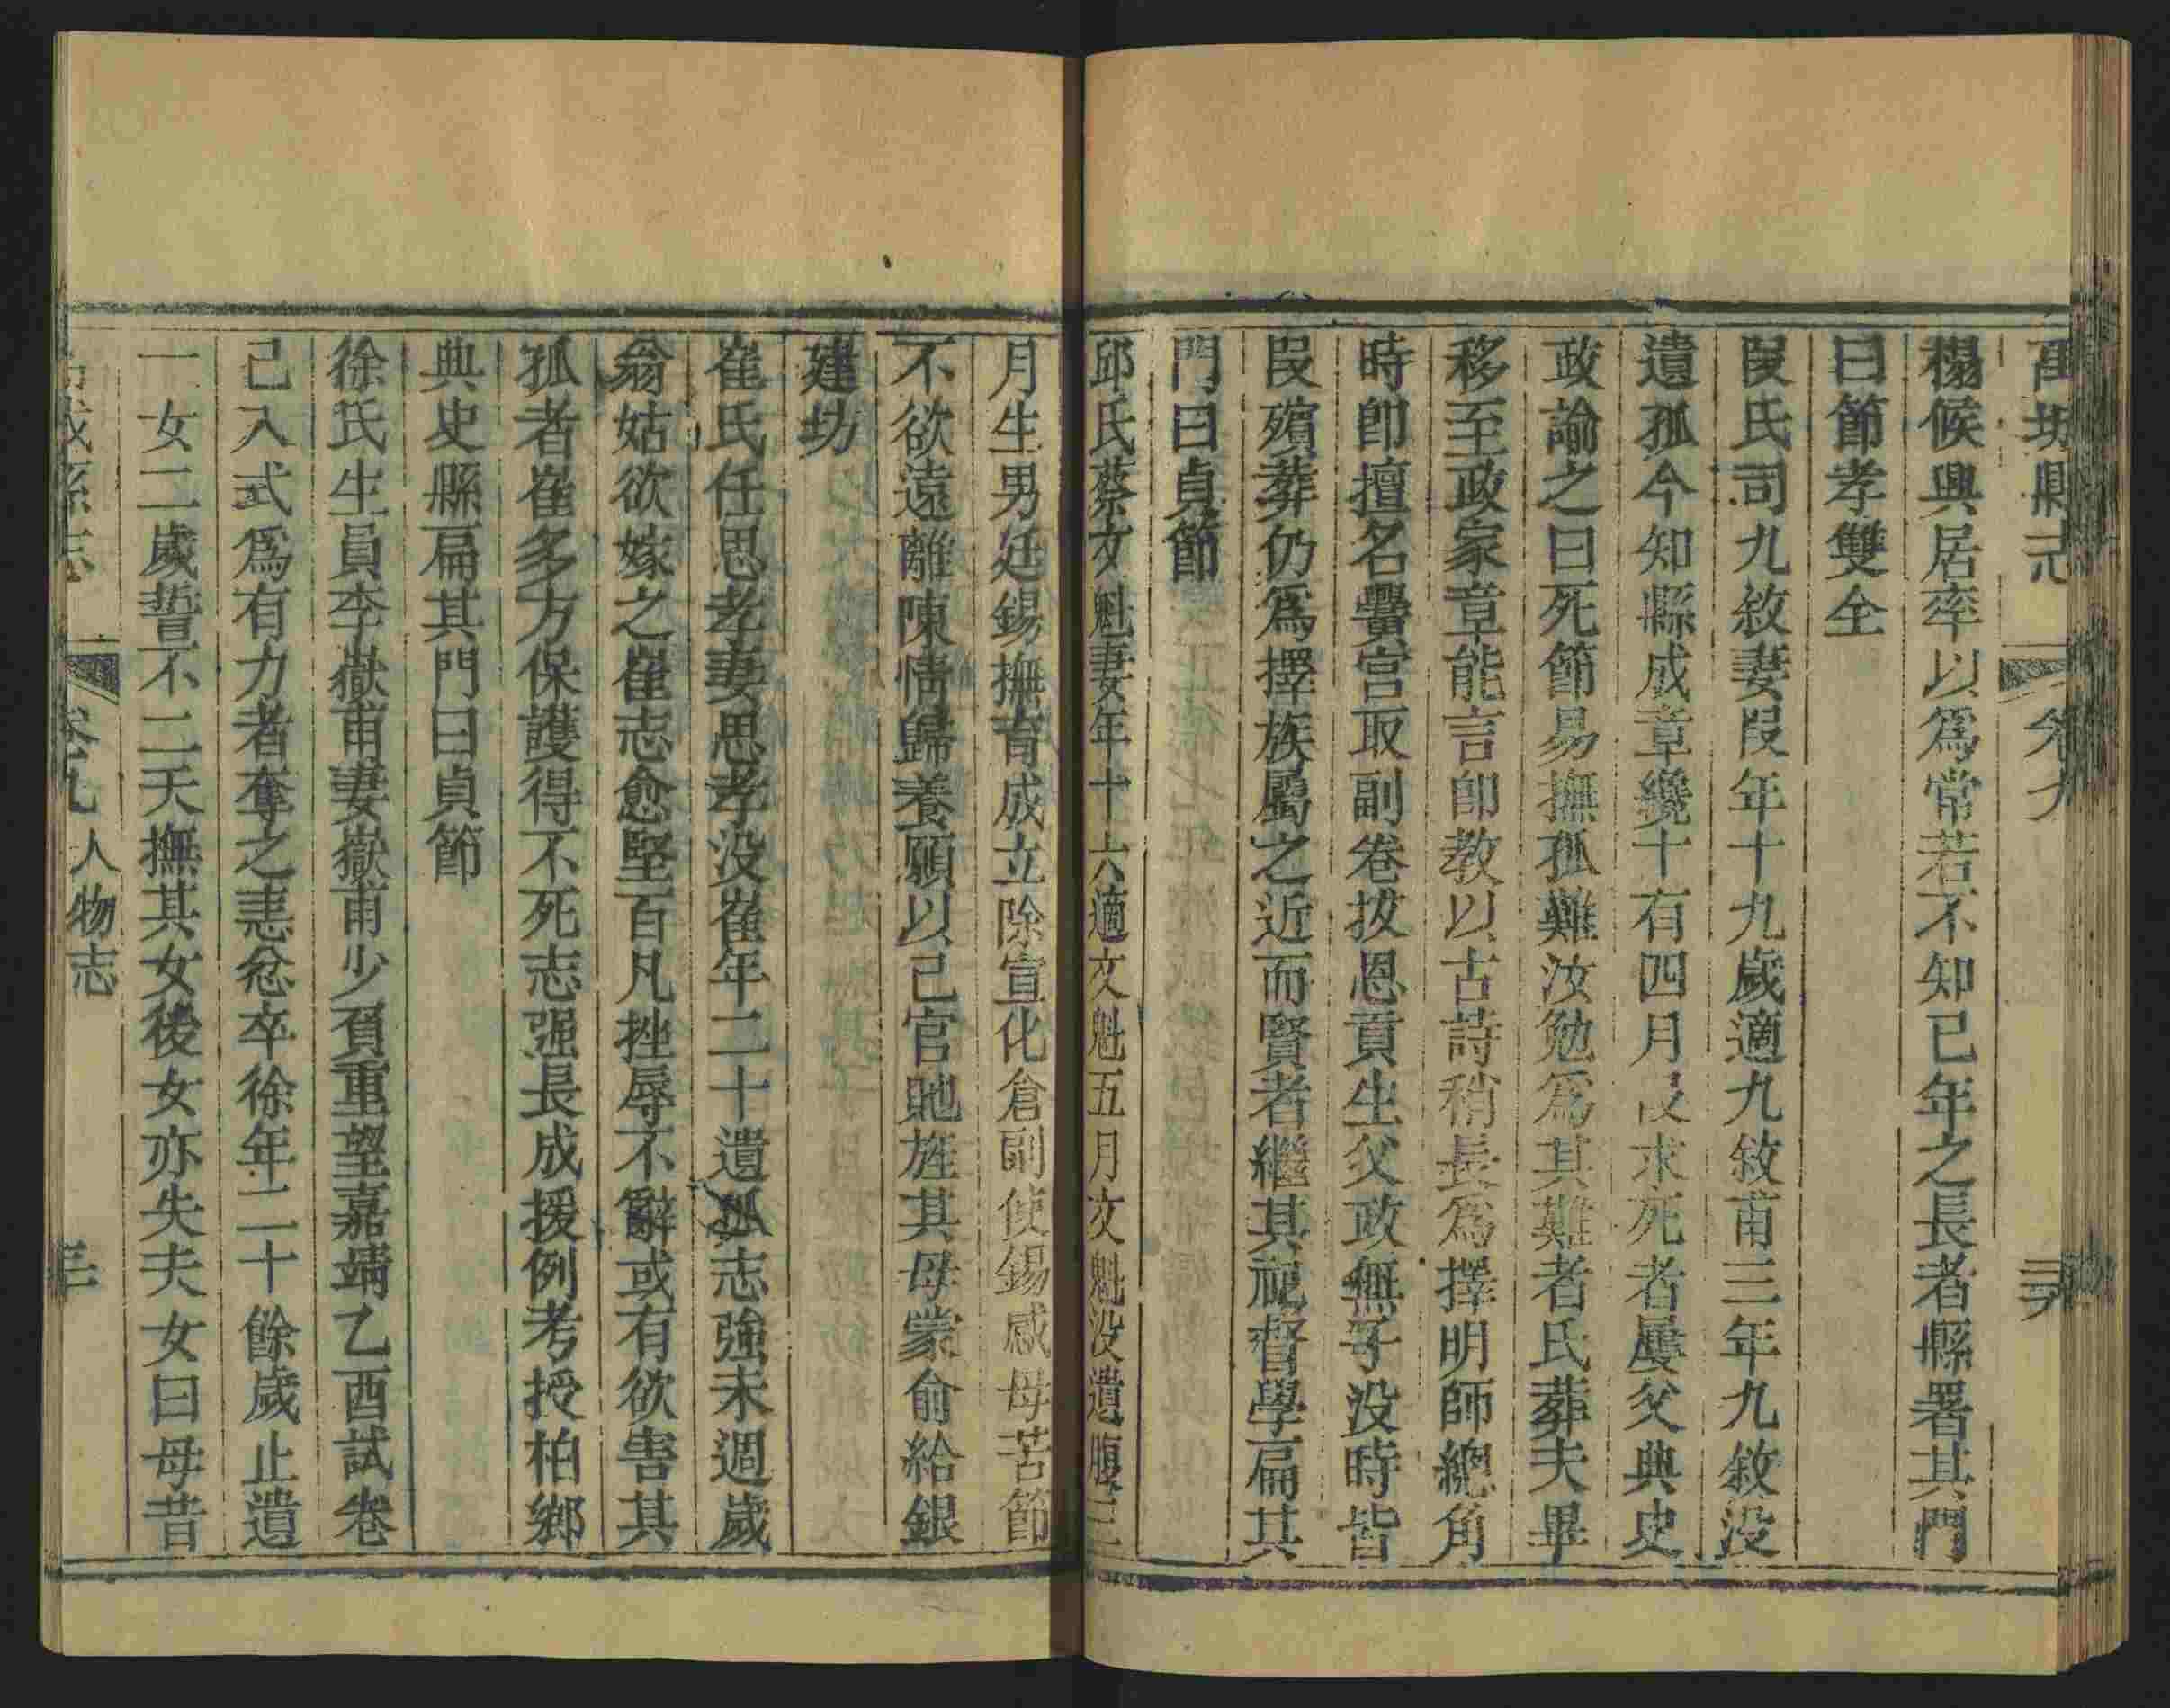 縣志
榻候興居率以爲常若不知已年之長者縣署其門
曰節孝雙全
段氏司九敘妻段年十九歲適九敘甫三年九敘没
遺孤今知縣成章纔十有四月段求死者屢父典史
政諭之曰死節易撫孤難汝勉爲其難者氏葬夫畢
移至政家章能言卽教以古詩稍長爲擇明師總角
時卽擅名黌宫取副卷拔恩貢生父政無子没時皆
段殯葬仍爲擇族屬之近而賢者繼其祀督學扁其
門曰貞節
邱氏蔡文魁妻年十六適文魁五月文魁没遺腹三
月生男廷錫撫育成立除宣化倉副使錫感母苦節
不欲遠離陳情歸養願以己官貤旌其母蒙俞給銀
建坊
崔氏任思孝妻思孝没崔年二十遺孤志強未週歲
翁姑欲嫁之崔志愈堅百凡挫辱不辭或有欲害其
孤者崔多方保護得不死志强長成援例考授柏鄉
典史縣扁其門曰貞節
徐氏生員李嶽甫妻嶽甫少頁重望嘉靖乙酉試卷
己入式爲有力者奪之恚忿卒徐年二十餘歲止遺
一女二歲誓不二天撫其女後女亦失夫女曰母昔
縣志 卷九 人物志